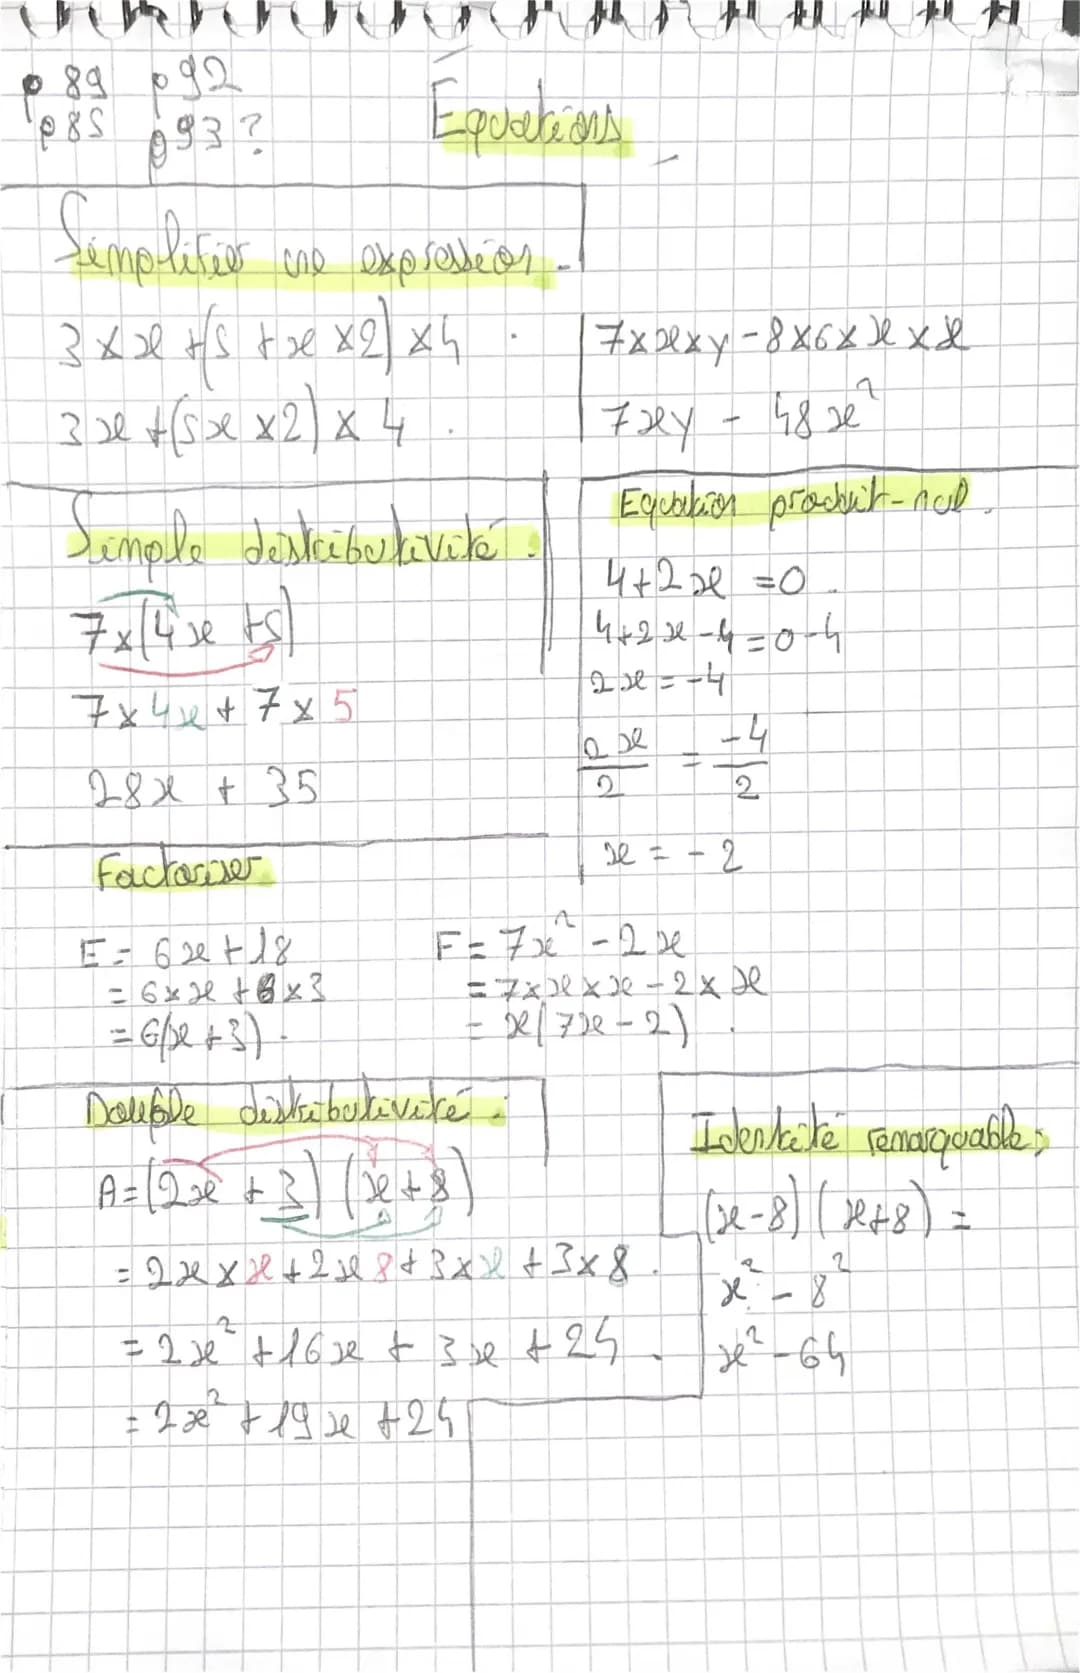 p 89 p92
p85 p93 ?
Équations
Simplifier une expression.
3 × x + (5 + x × 2) × 4
3x + (5x × 2) × 4 .
7 × x × y - 8 × 6 × x × x
7xy - 48x²
Simple distributivité.
7 × (4x + 5)
7 × 4x + 7 × 5
28x + 35
Equation produit-nul.
4 + 2x = 0 .
4 + 2x - 4 = 0 - 4
2x = -4
2x/2 = -4/2
x = - 2
Factoriser
E = 6x + 18
= 6 × x + 6 × 3
= 6(x + 3) .
F = 7x² - 2x
= 7 × x × x - 2 × x
= x(7x - 2) .
Double distributivité.
A = (2x + 3) (x + 8)
= 2x × x + 2x 8 + 3 × x + 3 × 8 .
= 2x² + 16x + 3x + 24 .
= 2x² + 19x + 24
Identité remarquable;
(x - 8) (x + 8) =
x² - 8²
x² - 64